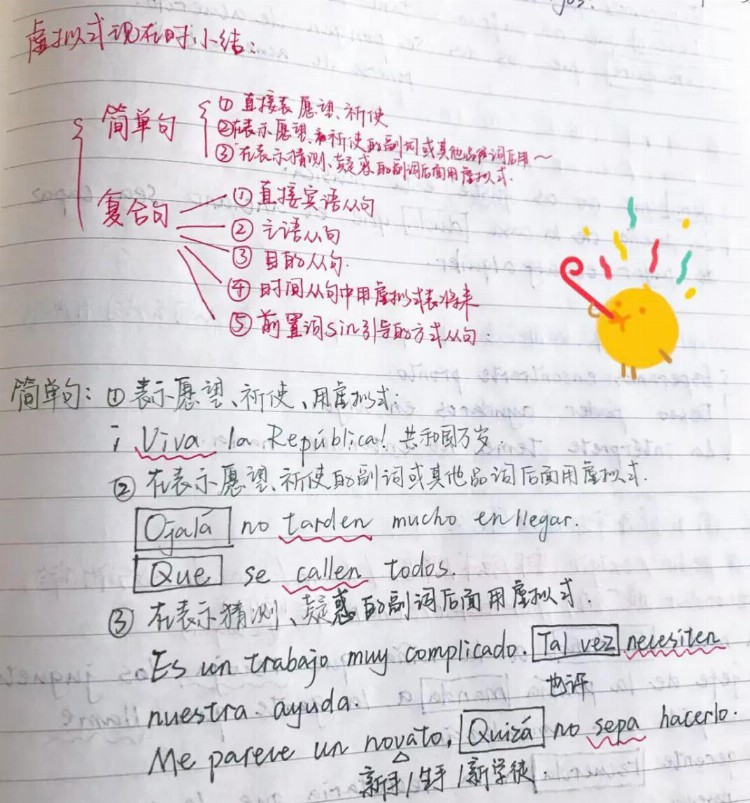 虚拟式现在时小结:
简单句
① 直接表愿望、祈使
②在表示愿望和祈使的副词或其他品词后用~
③ 在表示猜测、疑惑的副词后面用虚拟式.
复合句
①直接宾语从句
② 主语从句
③ 目的从句.
④ 时间从句中用虚拟式表将来
⑤ 前置词sin引导的方式从句.
简单句: ① 表示愿望、祈使、用虚拟式:
¡ Viva la República! 共和国万岁.
② 在表示愿望、祈使的副词或其他品词后面用虚拟式.
Ojalá no tarden mucho en llegar.
Que se callen todos.
③ 在表示猜测、疑惑的副词后面用虚拟式.
Es un trabajo muy complicado. Tal vez necesiten
也许
nuestra ayuda.
Me parece un novato, Quizá no sepa hacerlo.
新手/生手/新学徒.